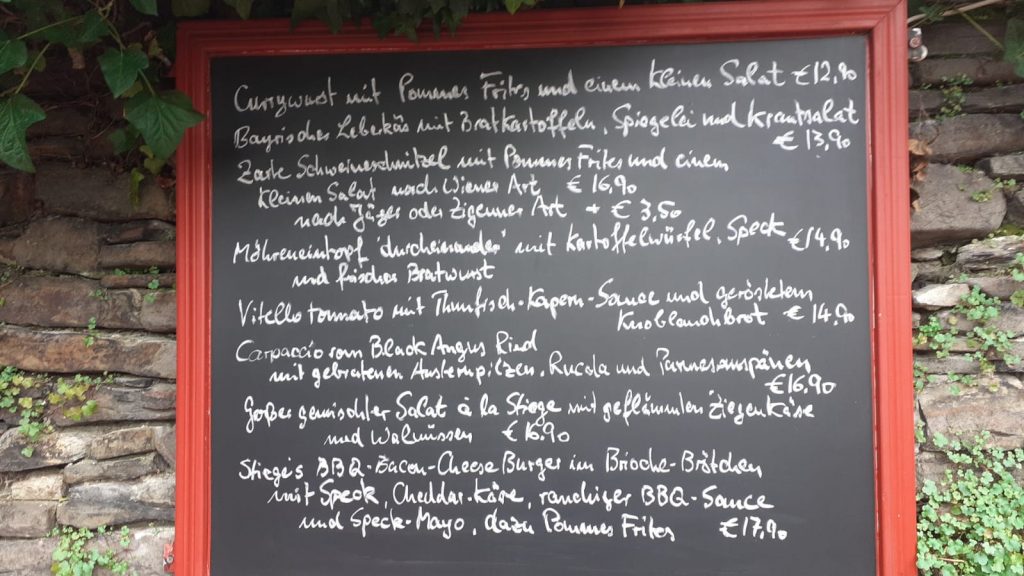 Currywurst mit Pommes Frites und einem kleinen Salat €12,90
Bayrischer Leberkäs mit Bratkartoffeln, Spiegelei und Krautsalat
€ 13,90
Zarte Schweineschnitzel mit Pommes Frites und einem
kleinen Salat nach Wiener Art € 16,90
nach Jäger oder Zigeuner Art + € 3,50
Möhreneintopf "durcheinander" mit Kartoffelwürfel, Speck €14,90
und frischer Bratwurst
Vitello tonnato mit Thunfisch-Kapern-Sauce und geröstetem
Knoblauchbrot € 14,90
Carpaccio vom Black Angus Rind
mit gebratenen Austernpilzen, Rucola und Parmesanspänen
€16,90
Großer gemischter Salat à la Stiege mit geflämmten Ziegenkäse
und Walnüssen €16,90
Stiege's BBQ-Bacon-Cheese Burger im Brioche-Brötchen
mit Speck, Cheddar-Käse, rauchiger BBQ-Sauce
und Speck-Mayo, dazu Pommes Frites €17,90